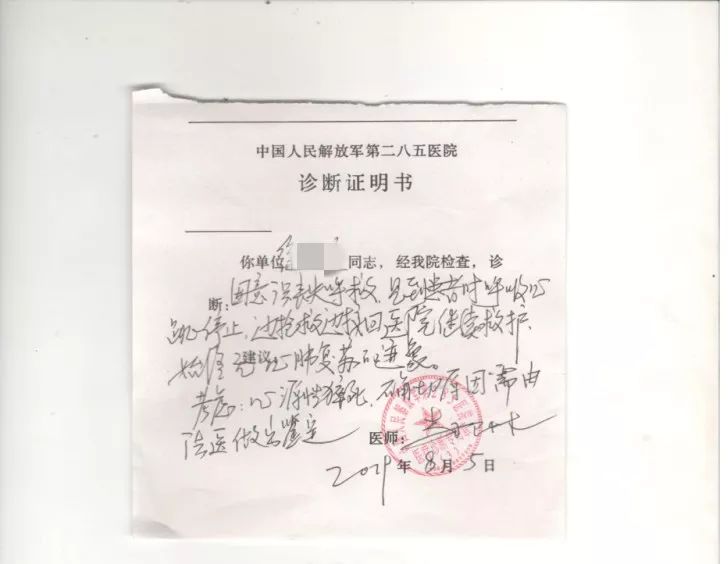 中国人民解放军第二八五医院
诊断证明书
你单位 同志，经我院检查，诊
断：因意识丧失呼救，见到患者时呼吸心
跳停止，边抢救边拉回医院继续救护，
始终无 建议 心肺复苏的迹象。
考虑：心源性猝死，确切原因需由
法医做出鉴定
医师：
2019年8月5日